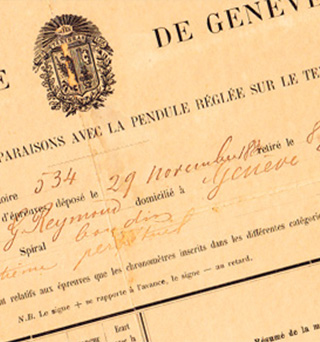 E
DE GENÈVE
PARAISONS AVEC LA PENDULE RÉGLÉE SUR LE TE
oire 534 d'épreuves, déposé le 29 novembre retiré le 8
G. Reymond domicilié à Genève
Spiral boudin
perpétuel
nt relatifs aux épreuves que les chronomètres inscrits dans les différentes catégorie
N.B. Le signe + se rapporte à l'avance, le signe — au retard.
Ecart
Résumé de la m